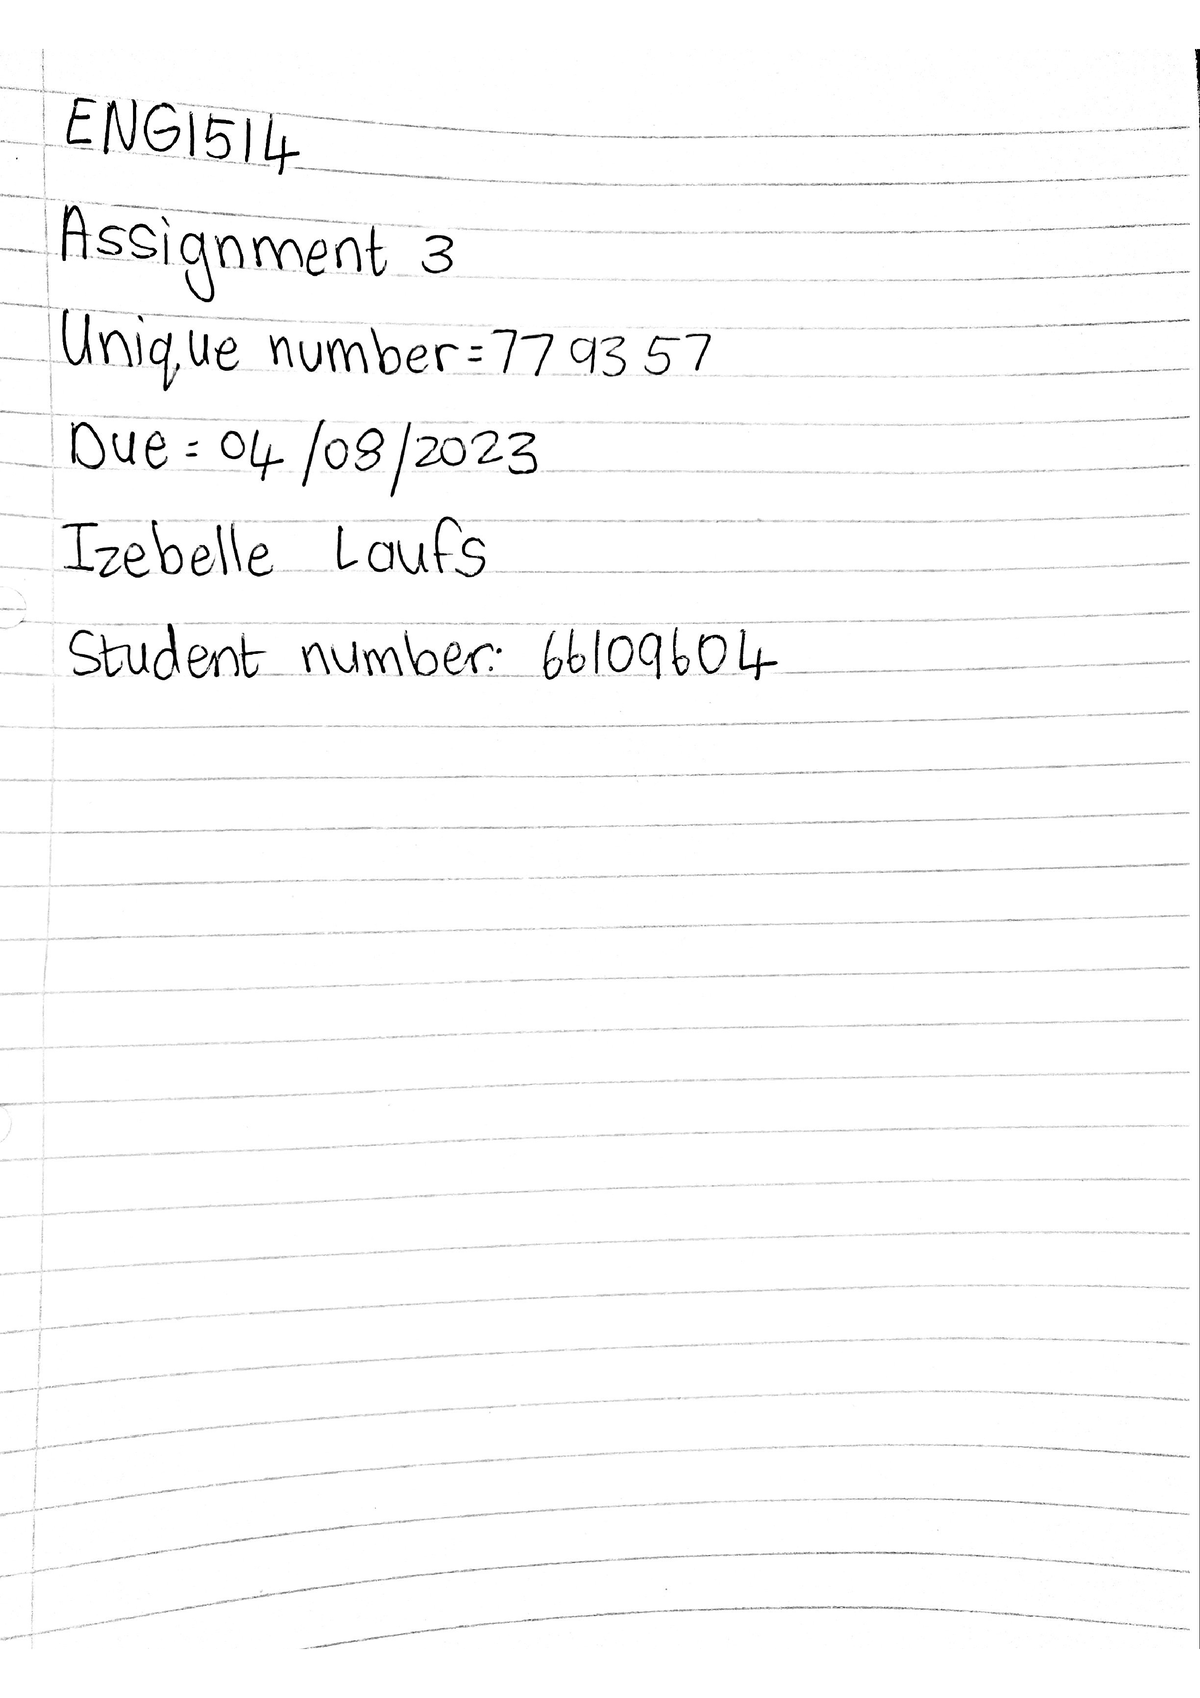 ENG1514
Assignment 3
Unique number=779357
Due = 04/08/2023
Izebelle Laufs
Student number: 66109604